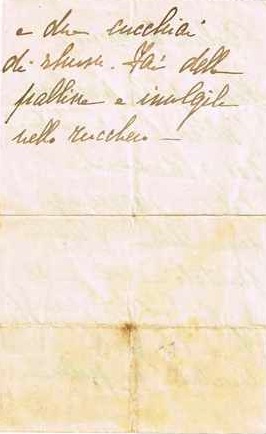 e due cucchiai
di rhum. Fai delle
palline e involgile
nello zucchero —